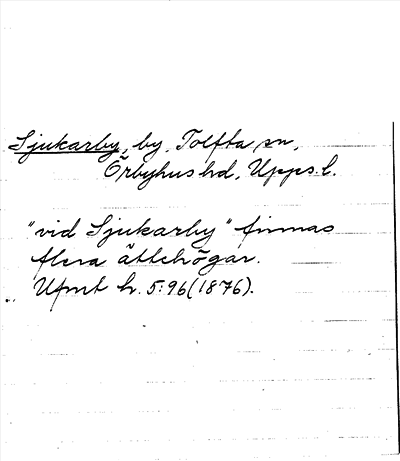 Sjukarby, by, Tolfta sn,
Örbyhus hd, Upps. l.
"vid Sjukarby" finnas
flera ättehögar.
Ufmt h. 5:96 (1876).